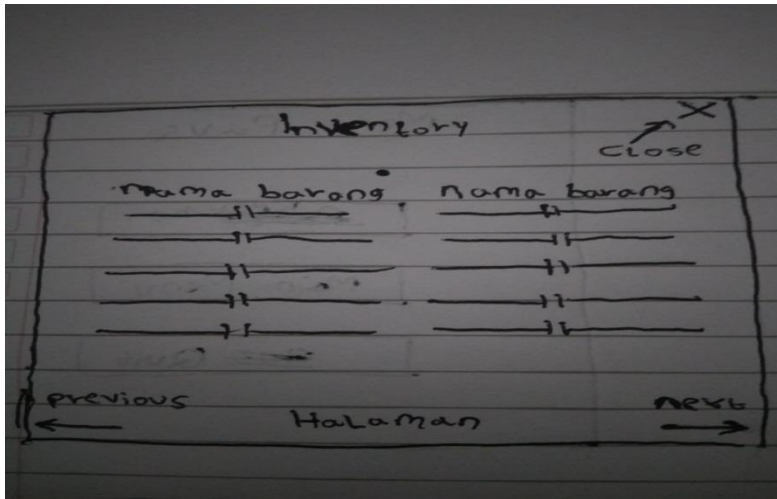 Inventory
X
Close
nama barang nama barang
previous next
Halaman